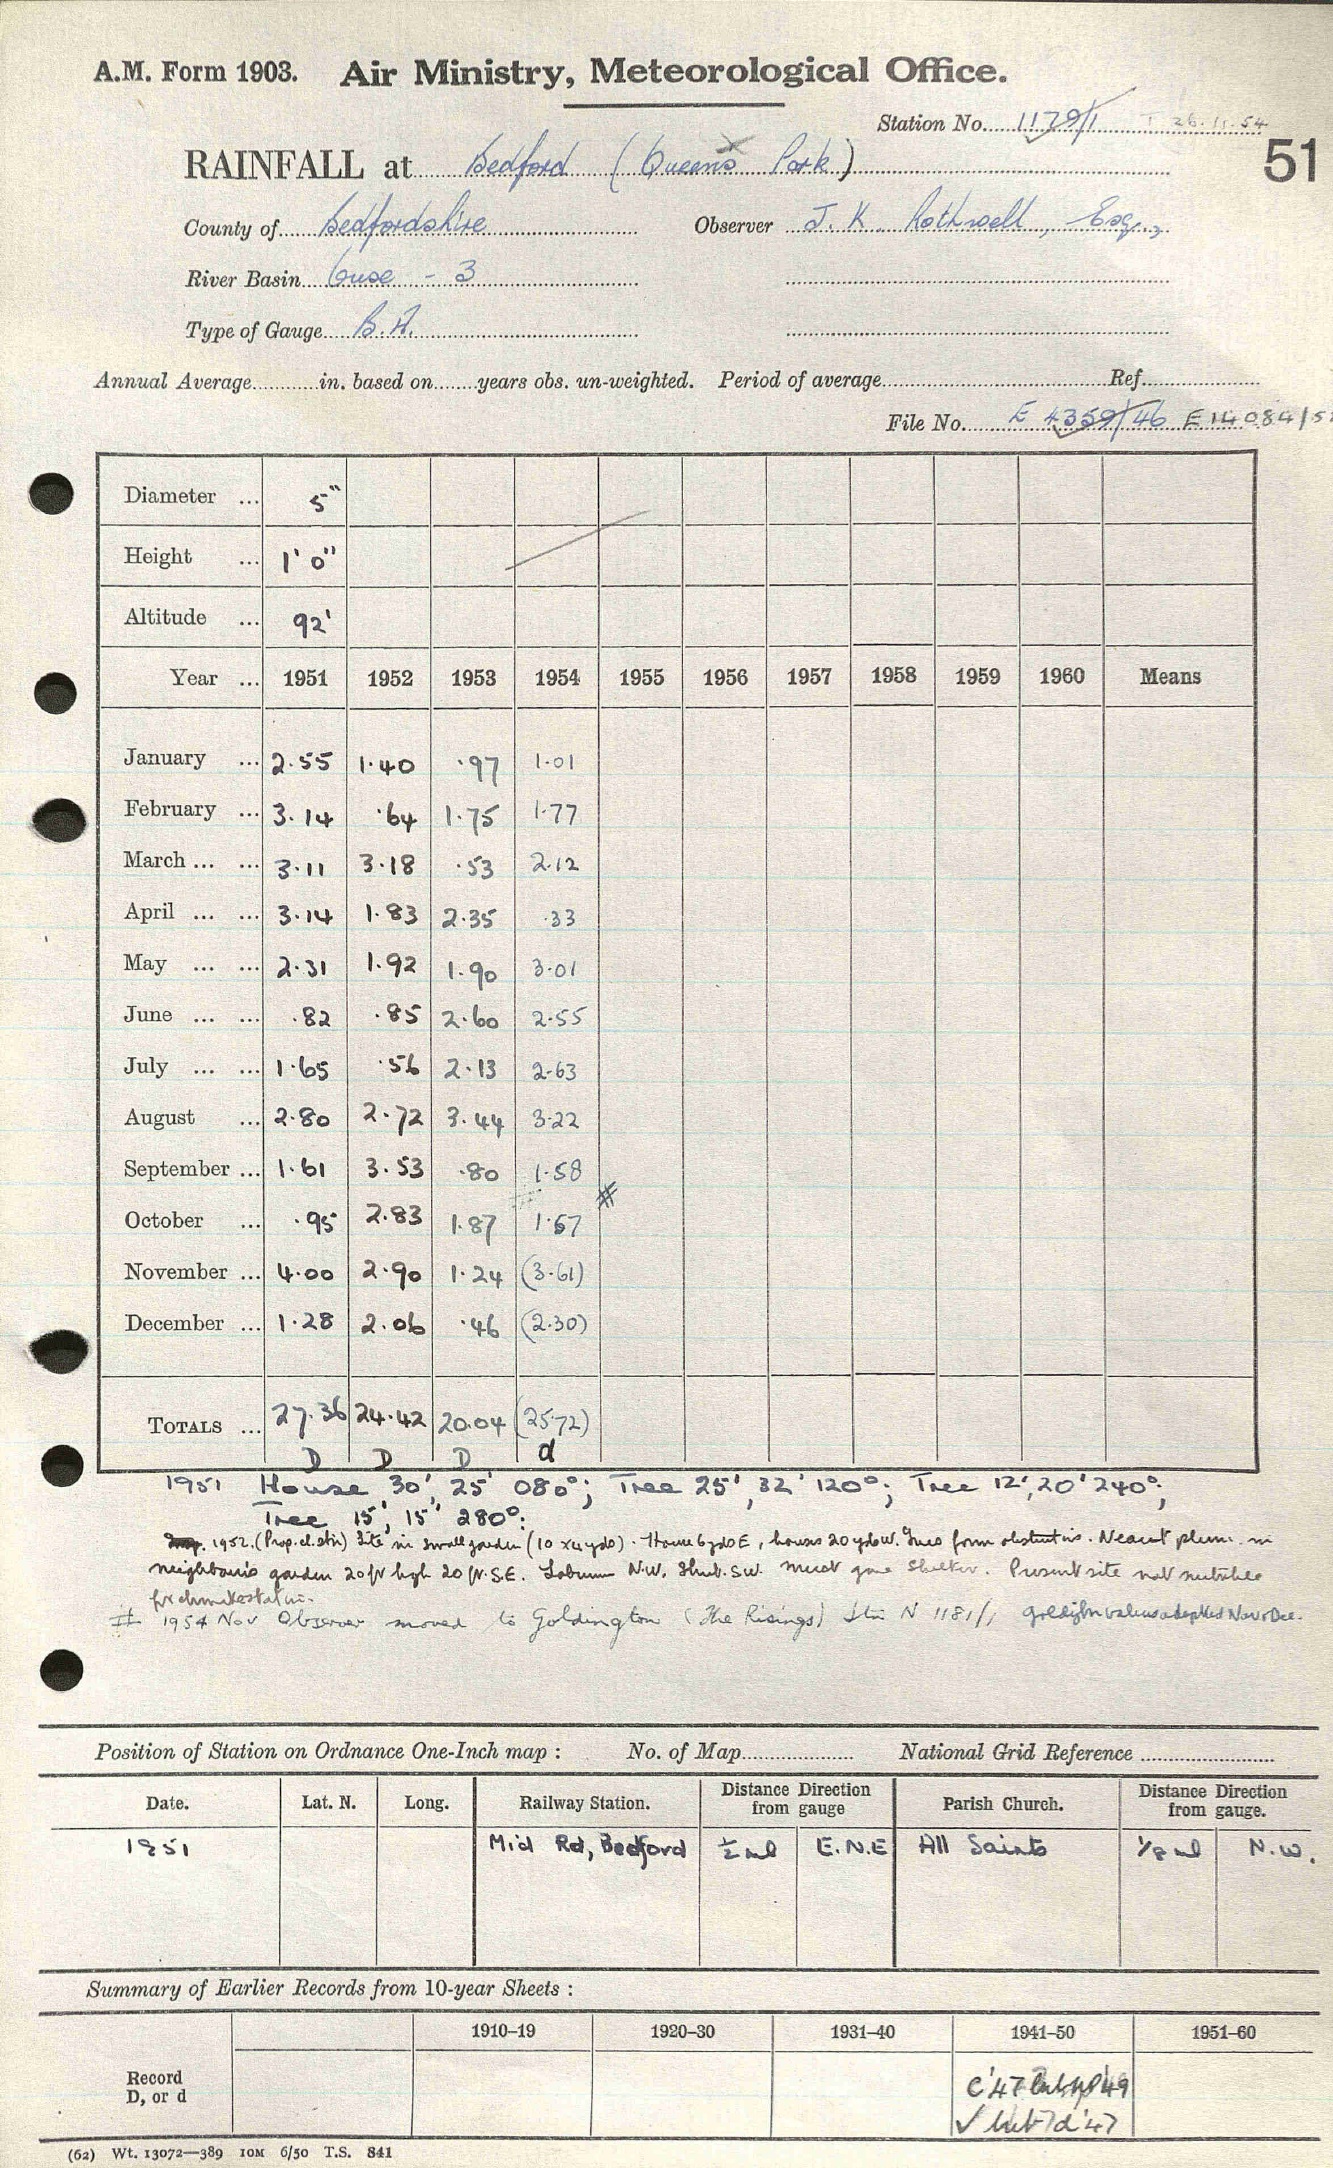 A.M. Form 1903. Air Ministry, Meteorological Office.
Station No. 1179/1 T 26.11.54
RAINFALL at Bedford (Queens Park) 51
County of Bedfordshire Observer J. K. Rothwell, Esq.,
River Basin Ouse - 3
Type of Gauge B.A.
Annual Average in. based on years obs. un-weighted. Period of average Ref.
File No. E 4359/46 E 14084/5
Diameter ... 5"
Height ... 1' 0"
Altitude ... 92'
Year ... 1951 1952 1953 1954 1955 1956 1957 1958 1959 1960 Means
January ... 2.55 1.40 .97 1.01
February ... 3.14 .64 1.75 1.77
March ... ... 3.11 3.18 .53 2.12
April ... ... 3.14 1.83 2.35 .33
May ... ... 2.31 1.92 1.90 3.01
June ... ... .82 .85 2.60 2.55
July ... ... 1.65 .56 2.13 2.63
August ... 2.80 2.72 3.44 3.22
September ... 1.61 3.53 .80 1.58
October ... .95 2.83 1.87 1.67 #
November ... 4.00 2.90 1.24 (3.61)
December ... 1.28 2.06 .46 (2.30)
TOTALS ... 27.36 24.42 20.04 (25.72)
D D D d
1951 House 30', 25' 080°; Tree 25', 32' 120°; Tree 12', 20' 240°;
Tree 15', 15' 280°.
1952. Site in small garden (10 x 4 yds). House 6 yds E, houses 20 yds W. Trees form obstructions. Nearest plum in
neighbour's garden 20 ft high 20 ft S.E. Laburnum N.W. Shrub S.W. must give shelter. Present site not suitable
for climate station.
# 1954 Nov Observer moved to Goldington (The Risings) Stn N 1181/1 Goldington values adopted Nov & Dec.
Position of Station on Ordnance One-Inch map : No. of Map National Grid Reference
Date. Lat. N. Long. Railway Station. Distance Direction from gauge Parish Church. Distance Direction from gauge.
1951 Mid Rd, Bedford ½ ml E.N.E All Saints 1/8 ml N.W.
Summary of Earlier Records from 10-year Sheets :
1910–19 1920–30 1931–40 1941–50 1951–60
Record
D, or d
C'47 '49
✓ but 7d '47
(62) Wt. 13072—389 10M 6/50 T.S. 841